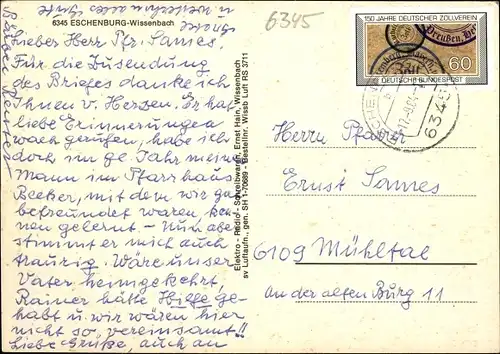 6345 ESCHENBURG-Wissenbach
6345
Lieber Herr Pfr. Sames.
Für die Zusendung
des Briefes danke ich
Ihnen v. Herzen. Er hat
liebe Erinnerungen
wach gerufen, habe ich
doch im ge. Jahr meinen
Mann im Pfarrhaus
Becker, mit dem wir gut
befreundet waren, ken-
nen gelernt - Nun aber
stimmt er mich auch
traurig. Wäre unser
Vater heimgekehrt,
Rainer hätte Hilfe ge-
habt u. wir wären hier
nicht so vereinsamt!!
Liebe Grüße, auch an
Elektro - Radio - Schreibwaren, Ernst Hain, Wissenbach
sv Luftaufn., gen. SH 1-70689 - Bestellnr. Wissb Luft RS 3711
150 JAHRE DEUTSCHER ZOLLVEREIN
Preußen
60
DEUTSCHE BUNDESPOST
6345
Herrn Pfarrer
Ernst Sames
6109 Mühltal
An der alten Burg 11